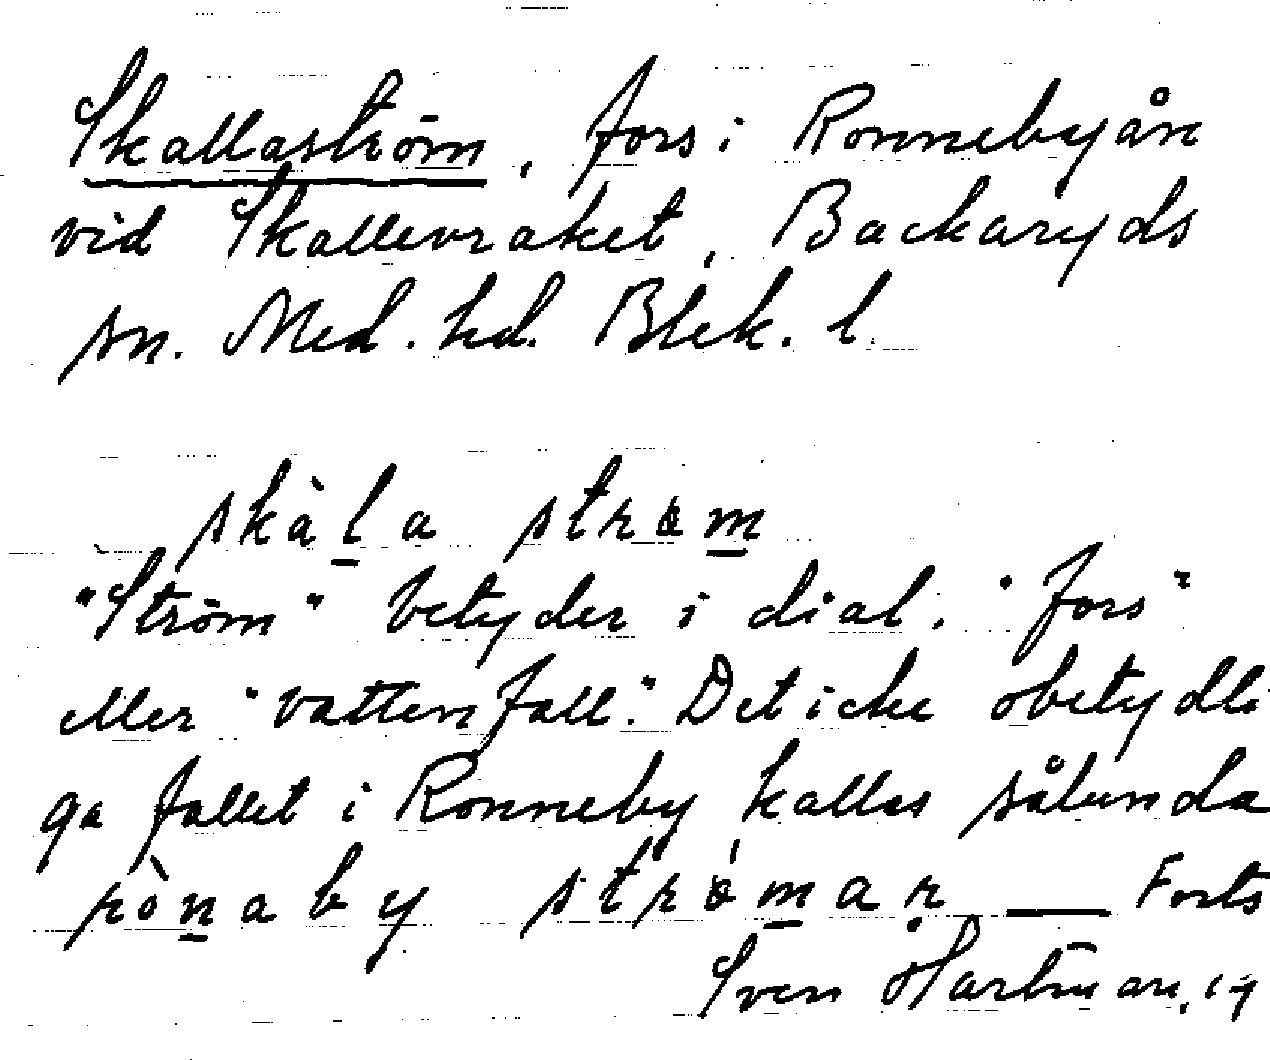 Skallaström, fors i Ronnebyån
vid Skallevraket, Backaryds
sn. Med. hd. Blek. l.
skàla strøm
"Ström" betyder i dial. "fors"
eller "vattenfall". Det icke obetydli
ga fallet i Ronneby kallas sålunda
rònaby strø̀maṛ — Forts
Sven Hartman, 19